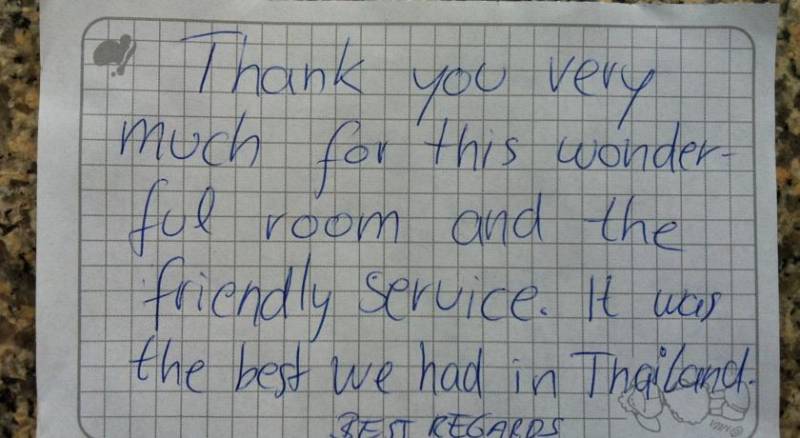 Thank you very
much for this wonder-
ful room and the
friendly service. It was
the best we had in Thailand.
BEST REGARDS